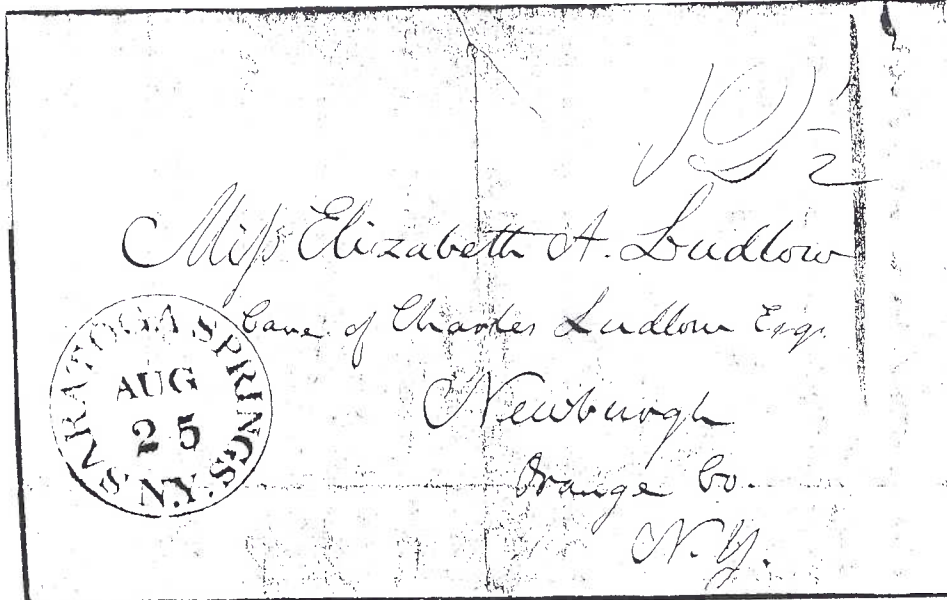 12½
Miss Elizabeth A. Ludlow
Care of Charles Ludlow Esqr.
Newburgh
Orange Co.
N.Y.
SARATOGA SPRINGS. N.Y.
AUG
25